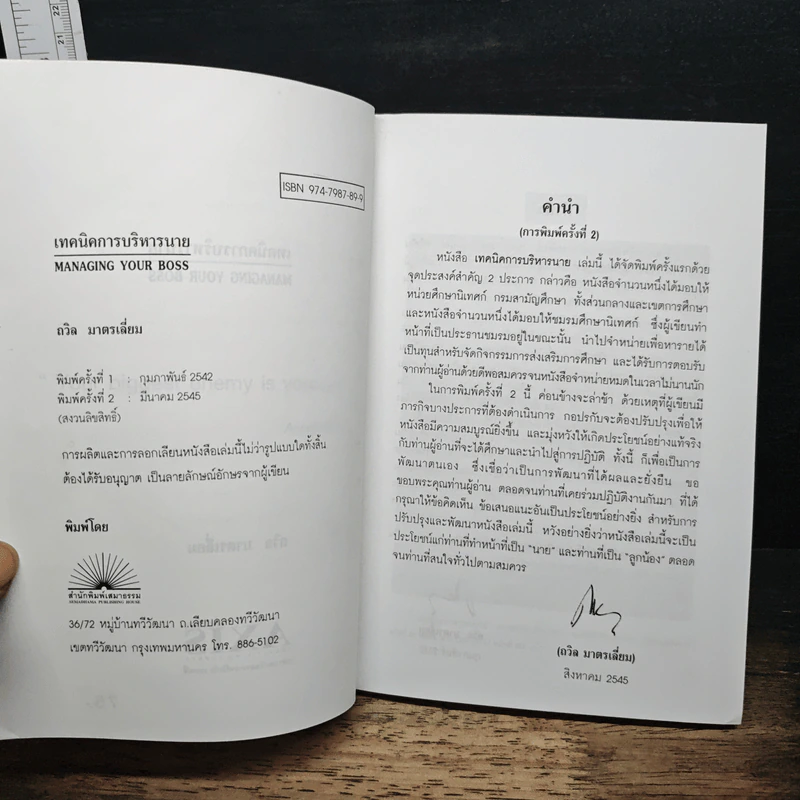 22
21
ISBN 974-7987-89-9
เทคนิคการบริหารนาย
MANAGING YOUR BOSS
ถวิล มาตรเลี่ยม
พิมพ์ครั้งที่ 1 : กุมภาพันธ์ 2542
พิมพ์ครั้งที่ 2 : มีนาคม 2545
(สงวนลิขสิทธิ์)
การผลิตและการลอกเลียนหนังสือเล่มนี้ไม่ว่ารูปแบบใดทั้งสิ้น
ต้องได้รับอนุญาต เป็นลายลักษณ์อักษรจากผู้เขียน
พิมพ์โดย
สำนักพิมพ์เสมาธรรม
SEMADHAMA PUBLISHING HOUSE
36/72 หมู่บ้านทวีวัฒนา ถ.เลียบคลองทวีวัฒนา
เขตทวีวัฒนา กรุงเทพมหานคร โทร. 886-5102
คำนำ
(การพิมพ์ครั้งที่ 2)
หนังสือ เทคนิคการบริหารนาย เล่มนี้ ได้จัดพิมพ์ครั้งแรกด้วย
จุดประสงค์สำคัญ 2 ประการ กล่าวคือ หนังสือจำนวนหนึ่งได้มอบให้
หน่วยศึกษานิเทศก์ กรมสามัญศึกษา ทั้งส่วนกลางและเขตการศึกษา
และหนังสือจำนวนหนึ่งได้มอบให้ชมรมศึกษานิเทศก์ ซึ่งผู้เขียนทำ
หน้าที่เป็นประธานชมรมอยู่ในขณะนั้น นำไปจำหน่ายเพื่อหารายได้
เป็นทุนสำหรับจัดกิจกรรมการส่งเสริมการศึกษา และได้รับการตอบรับ
จากท่านผู้อ่านด้วยดีพอสมควรจนหนังสือจำหน่ายหมดในเวลาไม่นานนัก
ในการพิมพ์ครั้งที่ 2 นี้ ค่อนข้างจะล่าช้า ด้วยเหตุที่ผู้เขียนมี
ภารกิจบางประการที่ต้องดำเนินการ กอปรกับจะต้องปรับปรุงเพื่อให้
หนังสือมีความสมบูรณ์ยิ่งขึ้น และมุ่งหวังให้เกิดประโยชน์อย่างแท้จริง
กับท่านผู้อ่านที่จะได้ศึกษาและนำไปสู่การปฏิบัติ ทั้งนี้ ก็เพื่อเป็นการ
พัฒนาตนเอง ซึ่งเชื่อว่าเป็นการพัฒนาที่ได้ผลและยั่งยืน ขอ
ขอบพระคุณท่านผู้อ่าน ตลอดจนท่านที่เคยร่วมปฏิบัติงานกันมา ที่ได้
กรุณาให้ข้อคิดเห็น ข้อเสนอแนะอันเป็นประโยชน์อย่างยิ่ง สำหรับการ
ปรับปรุงและพัฒนาหนังสือเล่มนี้ หวังอย่างยิ่งว่าหนังสือเล่มนี้จะเป็น
ประโยชน์แก่ท่านที่ทำหน้าที่เป็น "นาย" และท่านที่เป็น "ลูกน้อง" ตลอด
จนท่านที่สนใจทั่วไปตามสมควร
(ถวิล มาตรเลี่ยม)
สิงหาคม 2545